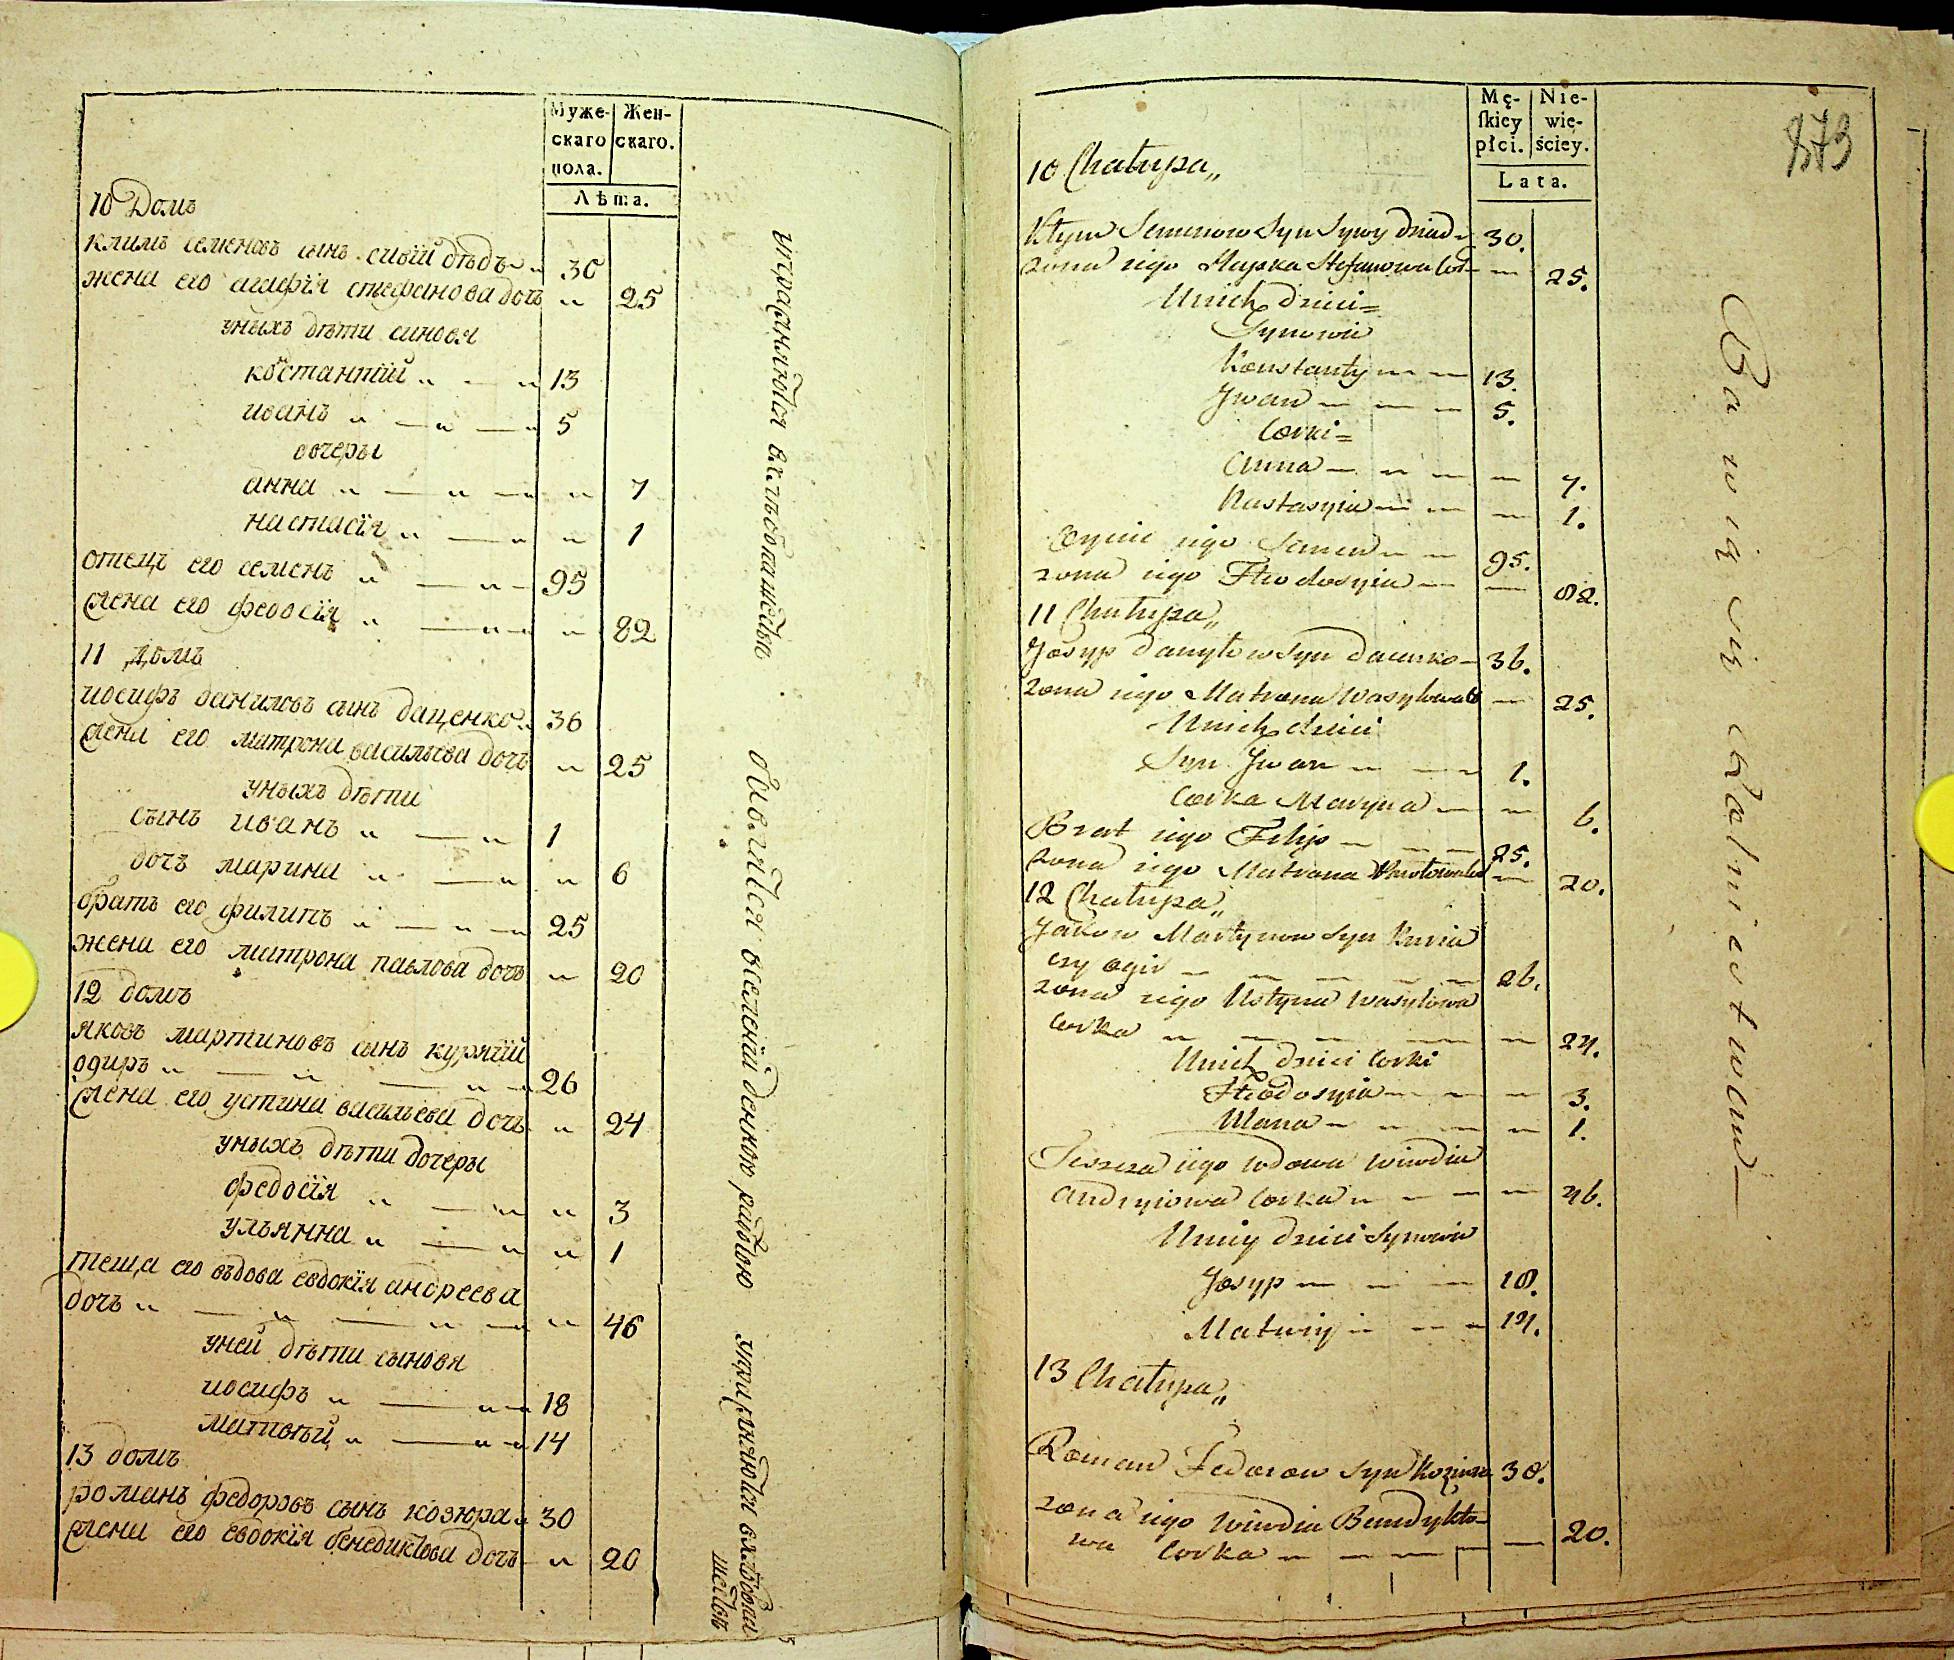 Муже- Жен-
скаго скаго.
пола.
Лѣта.
10 Домъ
климъ семеновъ сынъ сивїй дѣдъ „ 30
жена его агафїя стефанова дочь „ 25
уныхъ дѣти синовя
костантїй „ — „ 13
иванъ „ — „ — „ 5
дочеры
анна „ — „ — „ „ 7
настасїя „ — „ „ 1
отецъ его семенъ „ — „ — 95
жена его федосїя „ — „ — „ „ 82
11 домъ
иосифъ даниловъ сынъ даценко „ 36
жена его матрона васильева дочь „ 25
уныхъ дѣти
сынъ иванъ „ — „ 1
дочь марина „ — „ „ 6
братъ его филипъ „ — „ — „ 25
жена его матрона павлова дочь „ 20
12 домъ
яковъ мартиновъ сынъ курячїй
одиръ „ — „ — „ — „ 26
жена его устина васильева дочь „ 24
уныхъ дѣти дочеры
федосїя „ — „ „ 3
ульянна „ — „ „ 1
теща его вѣдова евдокїя андреева
дочь „ — „ — „ — „ „ 46
уней дѣти сыновя
иосифъ „ — „ — „ 18
матвѣй „ — „ — „ 14
13 домъ
романъ федоровъ сынъ козюра „ 30
жена его евдокїя бенедиктова дочь „ 20
Mę- Nie-
skiey wie-
płci. ściey.
Lata.
873
10 Chałupa„
Kłym Semenow Syn Sywy Dziad 30.
żona iego Hapka Stefanowa Cor — 25.
Unich dzieci=
Synowie
Konstanty — — 13.
Jwan — — — 5.
Corki=
Anna — „ — — 7.
Nastasyia — — — 1.
Oyciec iego Semen — — 95.
żona iego Fteodosyia — — 82.
11 Chałupa„
Josyp Danyłow Syn Dacenko — 36.
żona iego Matrona Wasylowa C — 25.
Unich dzieci
Syn Jwan — — — 1.
Corka Maryna — — 6.
Brat iego Filip — — — 25.
żona iego Matrona — 20.
12 Chałupa„
Jakow Martynow Syn Kuria
czy ogir — — — — — 26.
żona iego Ustyna Wasylowa
Corka — — — — — 24.
Unich dzieci Corki
Fteodosyia — — — 3.
Ulana — — — — 1.
Teszcza iego wdowa Wiwdia
Andryiowa Corka — — — — 46.
Uniey dzieci Synowie
Josyp — — — 18.
Matwiy — — — 14.
13 Chałupa„
Roman Fedorow Syn Koziura 30.
żona iego Wiwdia Benedykto-
wa Corka — — — — — 20.
Bawią się Rolnictwem —